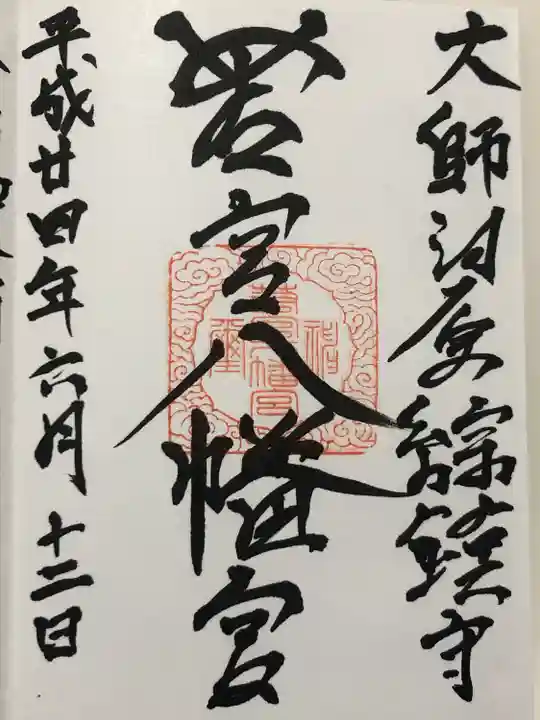 大師河原 総鎮守
若宮八幡宮
平成廿四年六月十二日